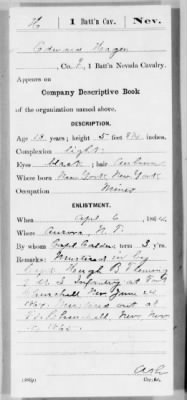 H | 1 Batt'n Cav. | Nev.
Edward Hagen
, Co. , 1 Batt'n Nevada Cavalry.
Appears on
Company Descriptive Book
of the organization named above.
DESCRIPTION.
Age years; height 5 feet 8½ inches.
Complexion light
Eyes black; hair Auburn
Where born New York, New York
Occupation Miner
ENLISTMENT.
When April 6, 1864.
Where Aurora, N. T.
By whom Capt. ; term 3 y'rs.
Remarks: Mustered in by
Capt. Hugh B. Fleming
U. S. Infantry at Ft.
Churchill Nev. June
1864. Mustered out at
Ft. Churchill, Nev. Nov.
1865.
Copyist.